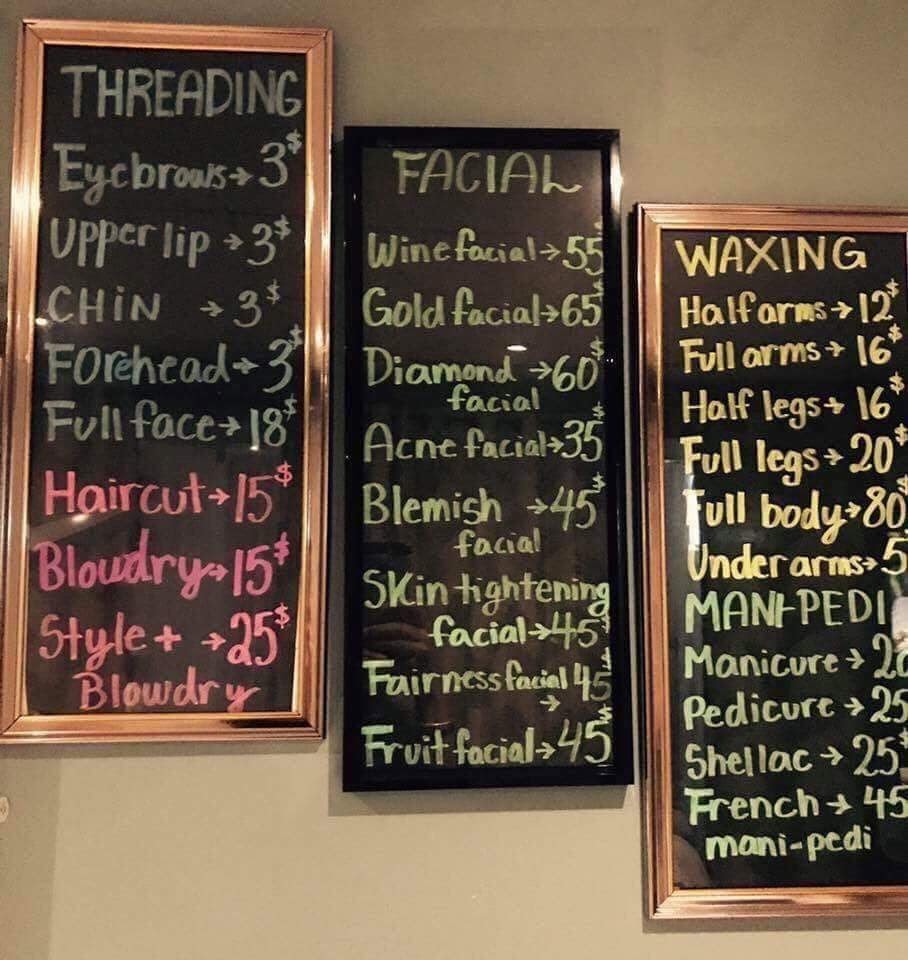 THREADING
Eyebrows→3$
Upper lip→3$
CHiN →3$
FOrehead→3$
Full face→18$
Haircut→15$
Bloudry→15$
Style+ →25$
Blowdry
FACIAL
Wine facial→55$
Gold facial→65$
Diamond →60$
facial
Acne facial→35$
Blemish →45$
facial
SKin tightening
facial→45$
Fairness facial 45$
→
Fruit facial→45$
WAXING
Half arms→12$
Full arms→16$
Half legs→16$
Full legs→20$
Full body→80$
Under arms→5
MANI-PEDI
Manicure→20
Pedicure→25
Shellac→25$
French→45
mani-pedi